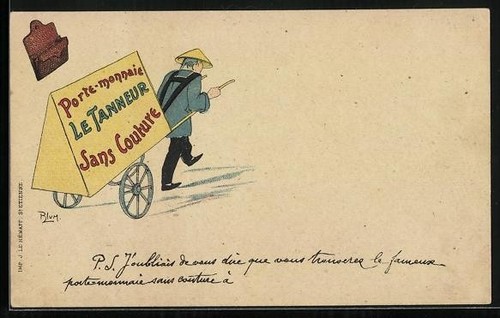 Porte-monnaie
LE TANNEUR
Sans Couture
BLUM.
P.S. J'oubliais de vous dire que vous trouverez le fameux
porte-monnaie sans couture à
IMP. J. LE HÉNAFF. ST ETIENNE